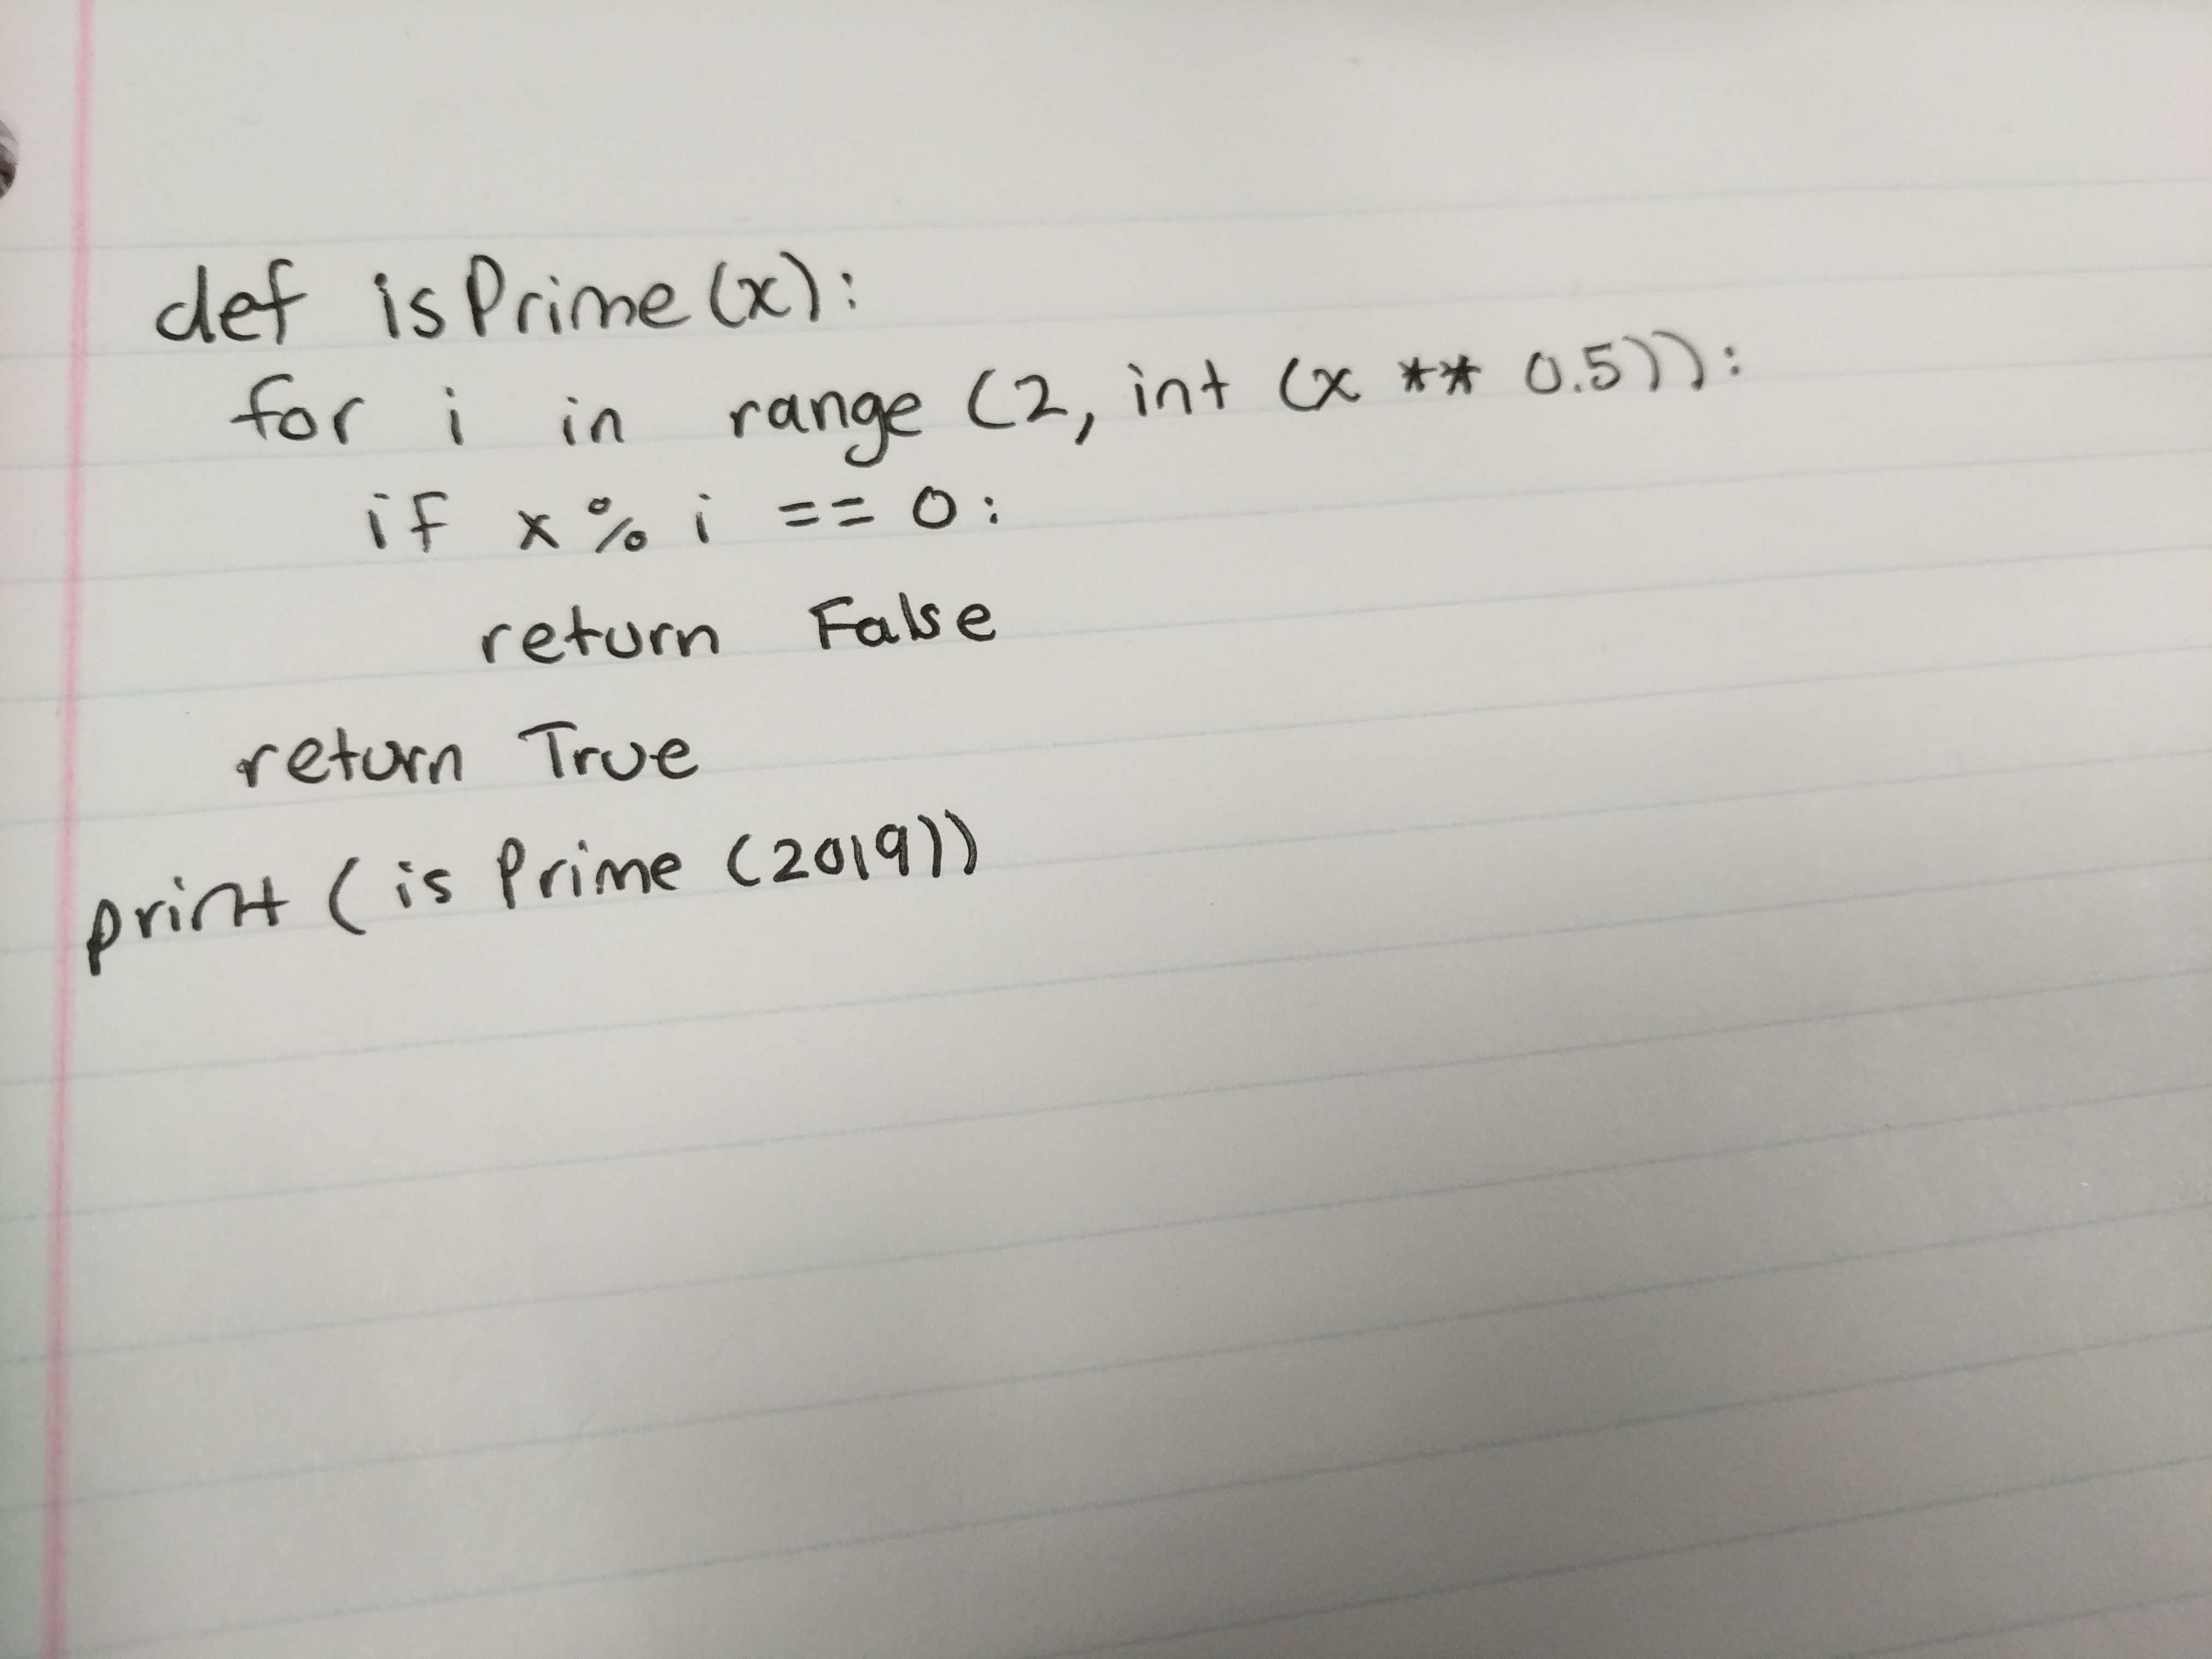 def isPrime(x):
for i in range (2, int (x ** 0.5)):
if x % i == 0:
return False
return True
print (isPrime (2019))